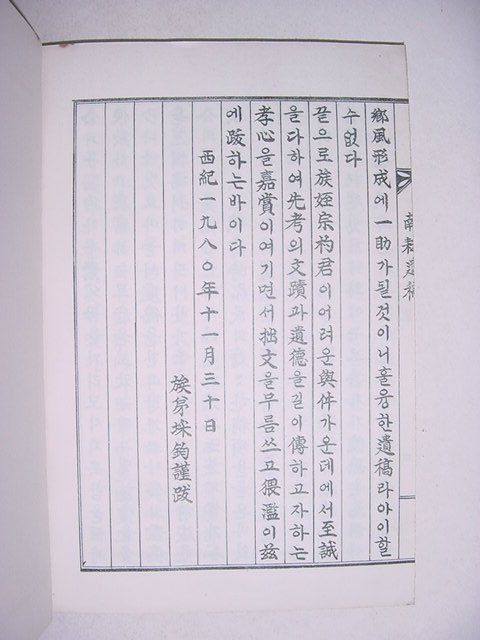 鄕風形成에一助가될것이니훌융한遺稿라아이할
수없다
끝으로族姪宗杓君이어려운與件가운데에서至誠
을다하여先考의文蹟과遺德을길이傳하고자하는
孝心을嘉賞이여기면서拙文을무릅쓰고猥濫이玆
에跋하는바이다
西紀一九八○年十一月三十日
族弟埰鈞謹跋